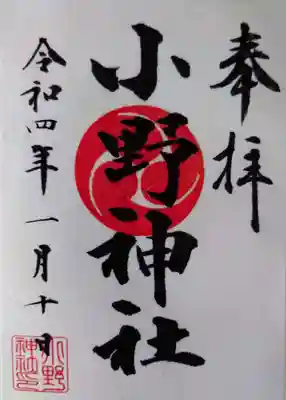 奉拝
小野神社
令和四年一月十日
小野
神社印